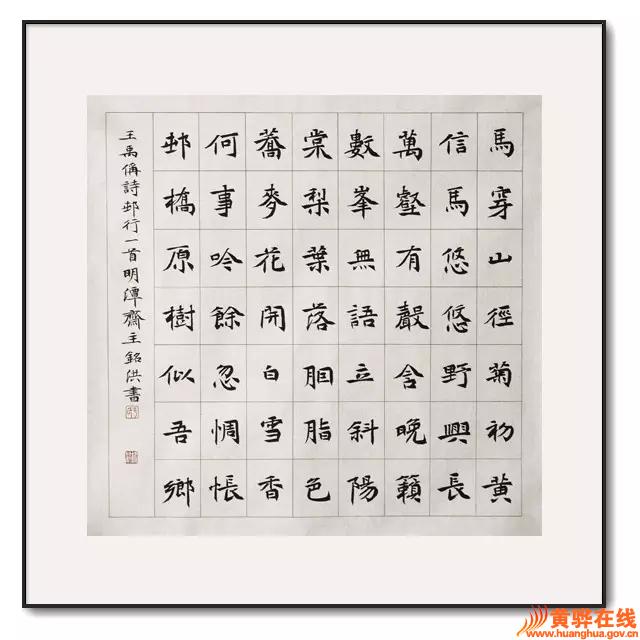 馬穿山徑菊初黃
信馬悠悠野興長
萬壑有聲含晚籟
數峯無語立斜陽
棠梨葉落胭脂色
蕎麥花開白雪香
何事吟餘忽惆悵
邨橋原樹似吾鄉
王禹偁詩邨行一首明潭齋主銘洪書
黄骅在线
www.huanghua.gov.cn